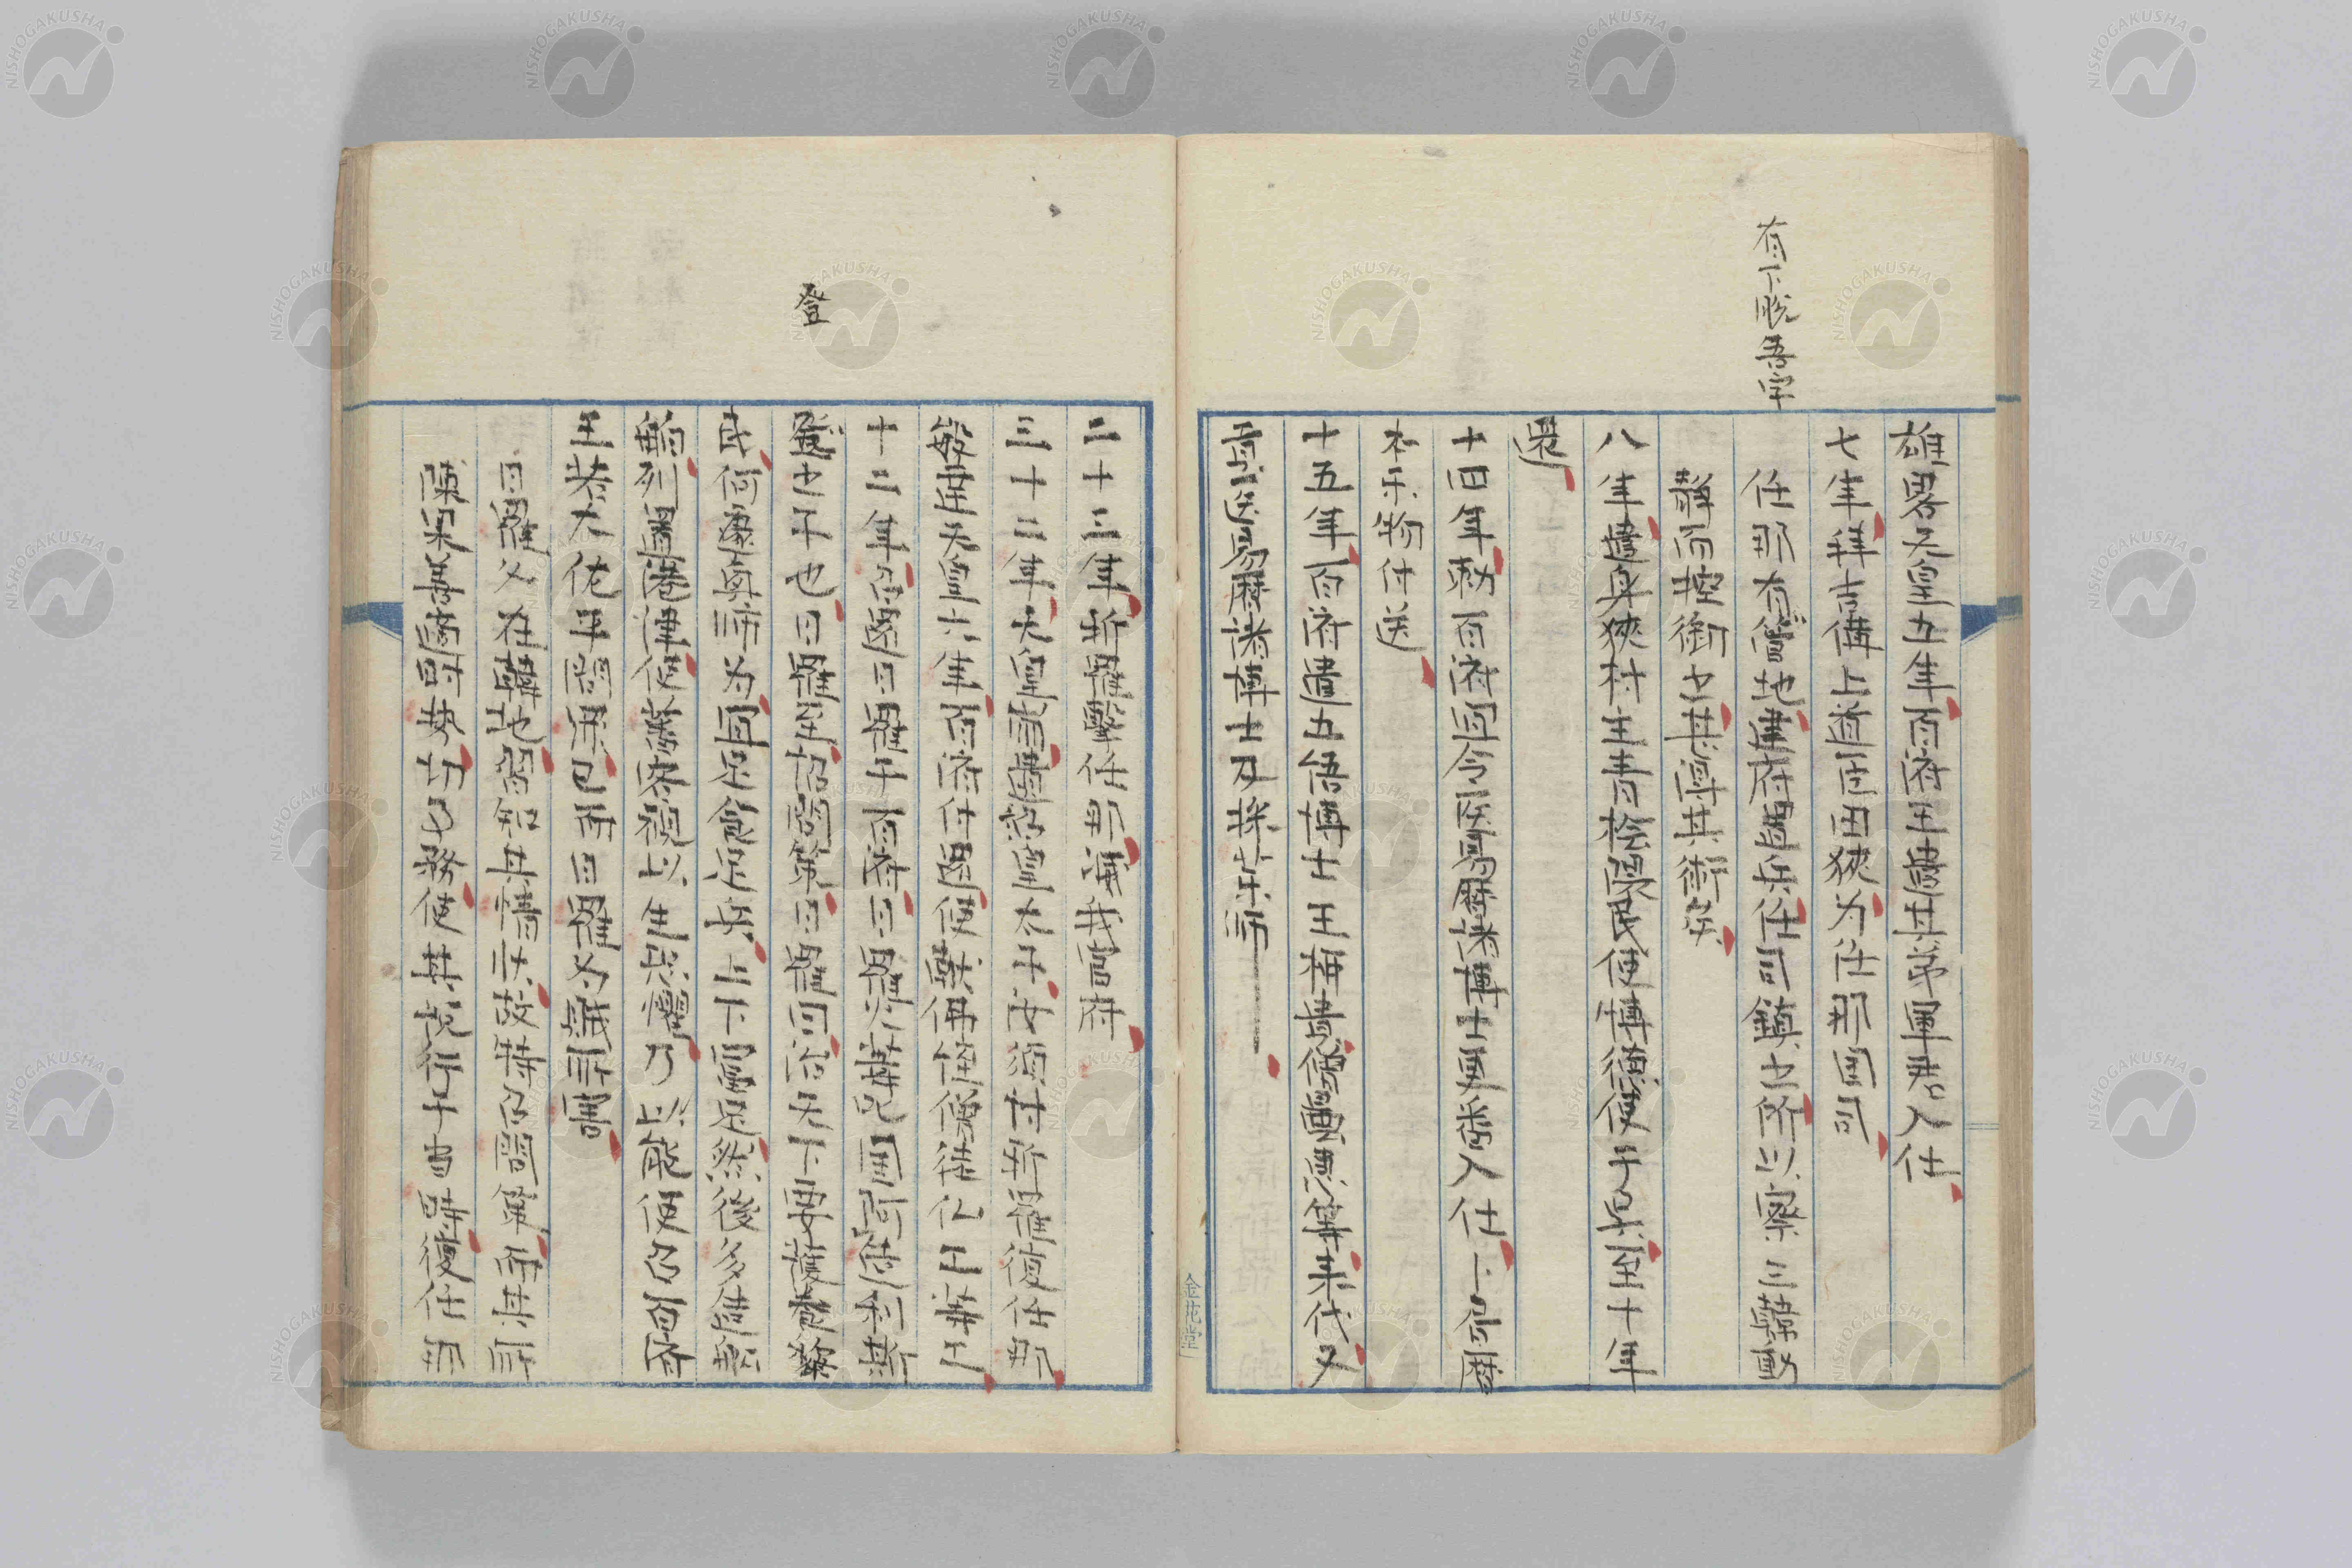 有下脱吾字
雄畧天皇五年百済王遣其弟軍君入仕
七年拜吉備上道臣田狹为任那国司
任那有官地建府置兵任司鎮之所以察三韓動
靜而控御之其得其術矣
八年遣身狹村主青桧隈民使博德使于吴至十年
還
十四年勅百済国令医易暦博士更番入仕卜易暦
本示物付送
十五年百済遣五経博士王柳貴僧曇惠等来代又
貢送易暦博士及採药师
金花堂
二十三年新羅擊任那滅我官府
三十二年天皇有遺皇太子汝須付新羅復任那
敏達天皇六年百済付還使献佛経僧徒仏工寺工
十二年召還日羅于百済日羅火葦北国阿利斯
登
登之子也日羅至招問策日羅曰治天下要護養黎
民何遽興师为国足食足兵上下富足然後多造船
舶列置港津使蕃客視以生恐懼乃以能使召百済
王若太佐平問罪已而日羅为賊所害
日羅父在韓地習知其情状故特召問策所其所
陳策善適时势切事務使其説行于当時復任那